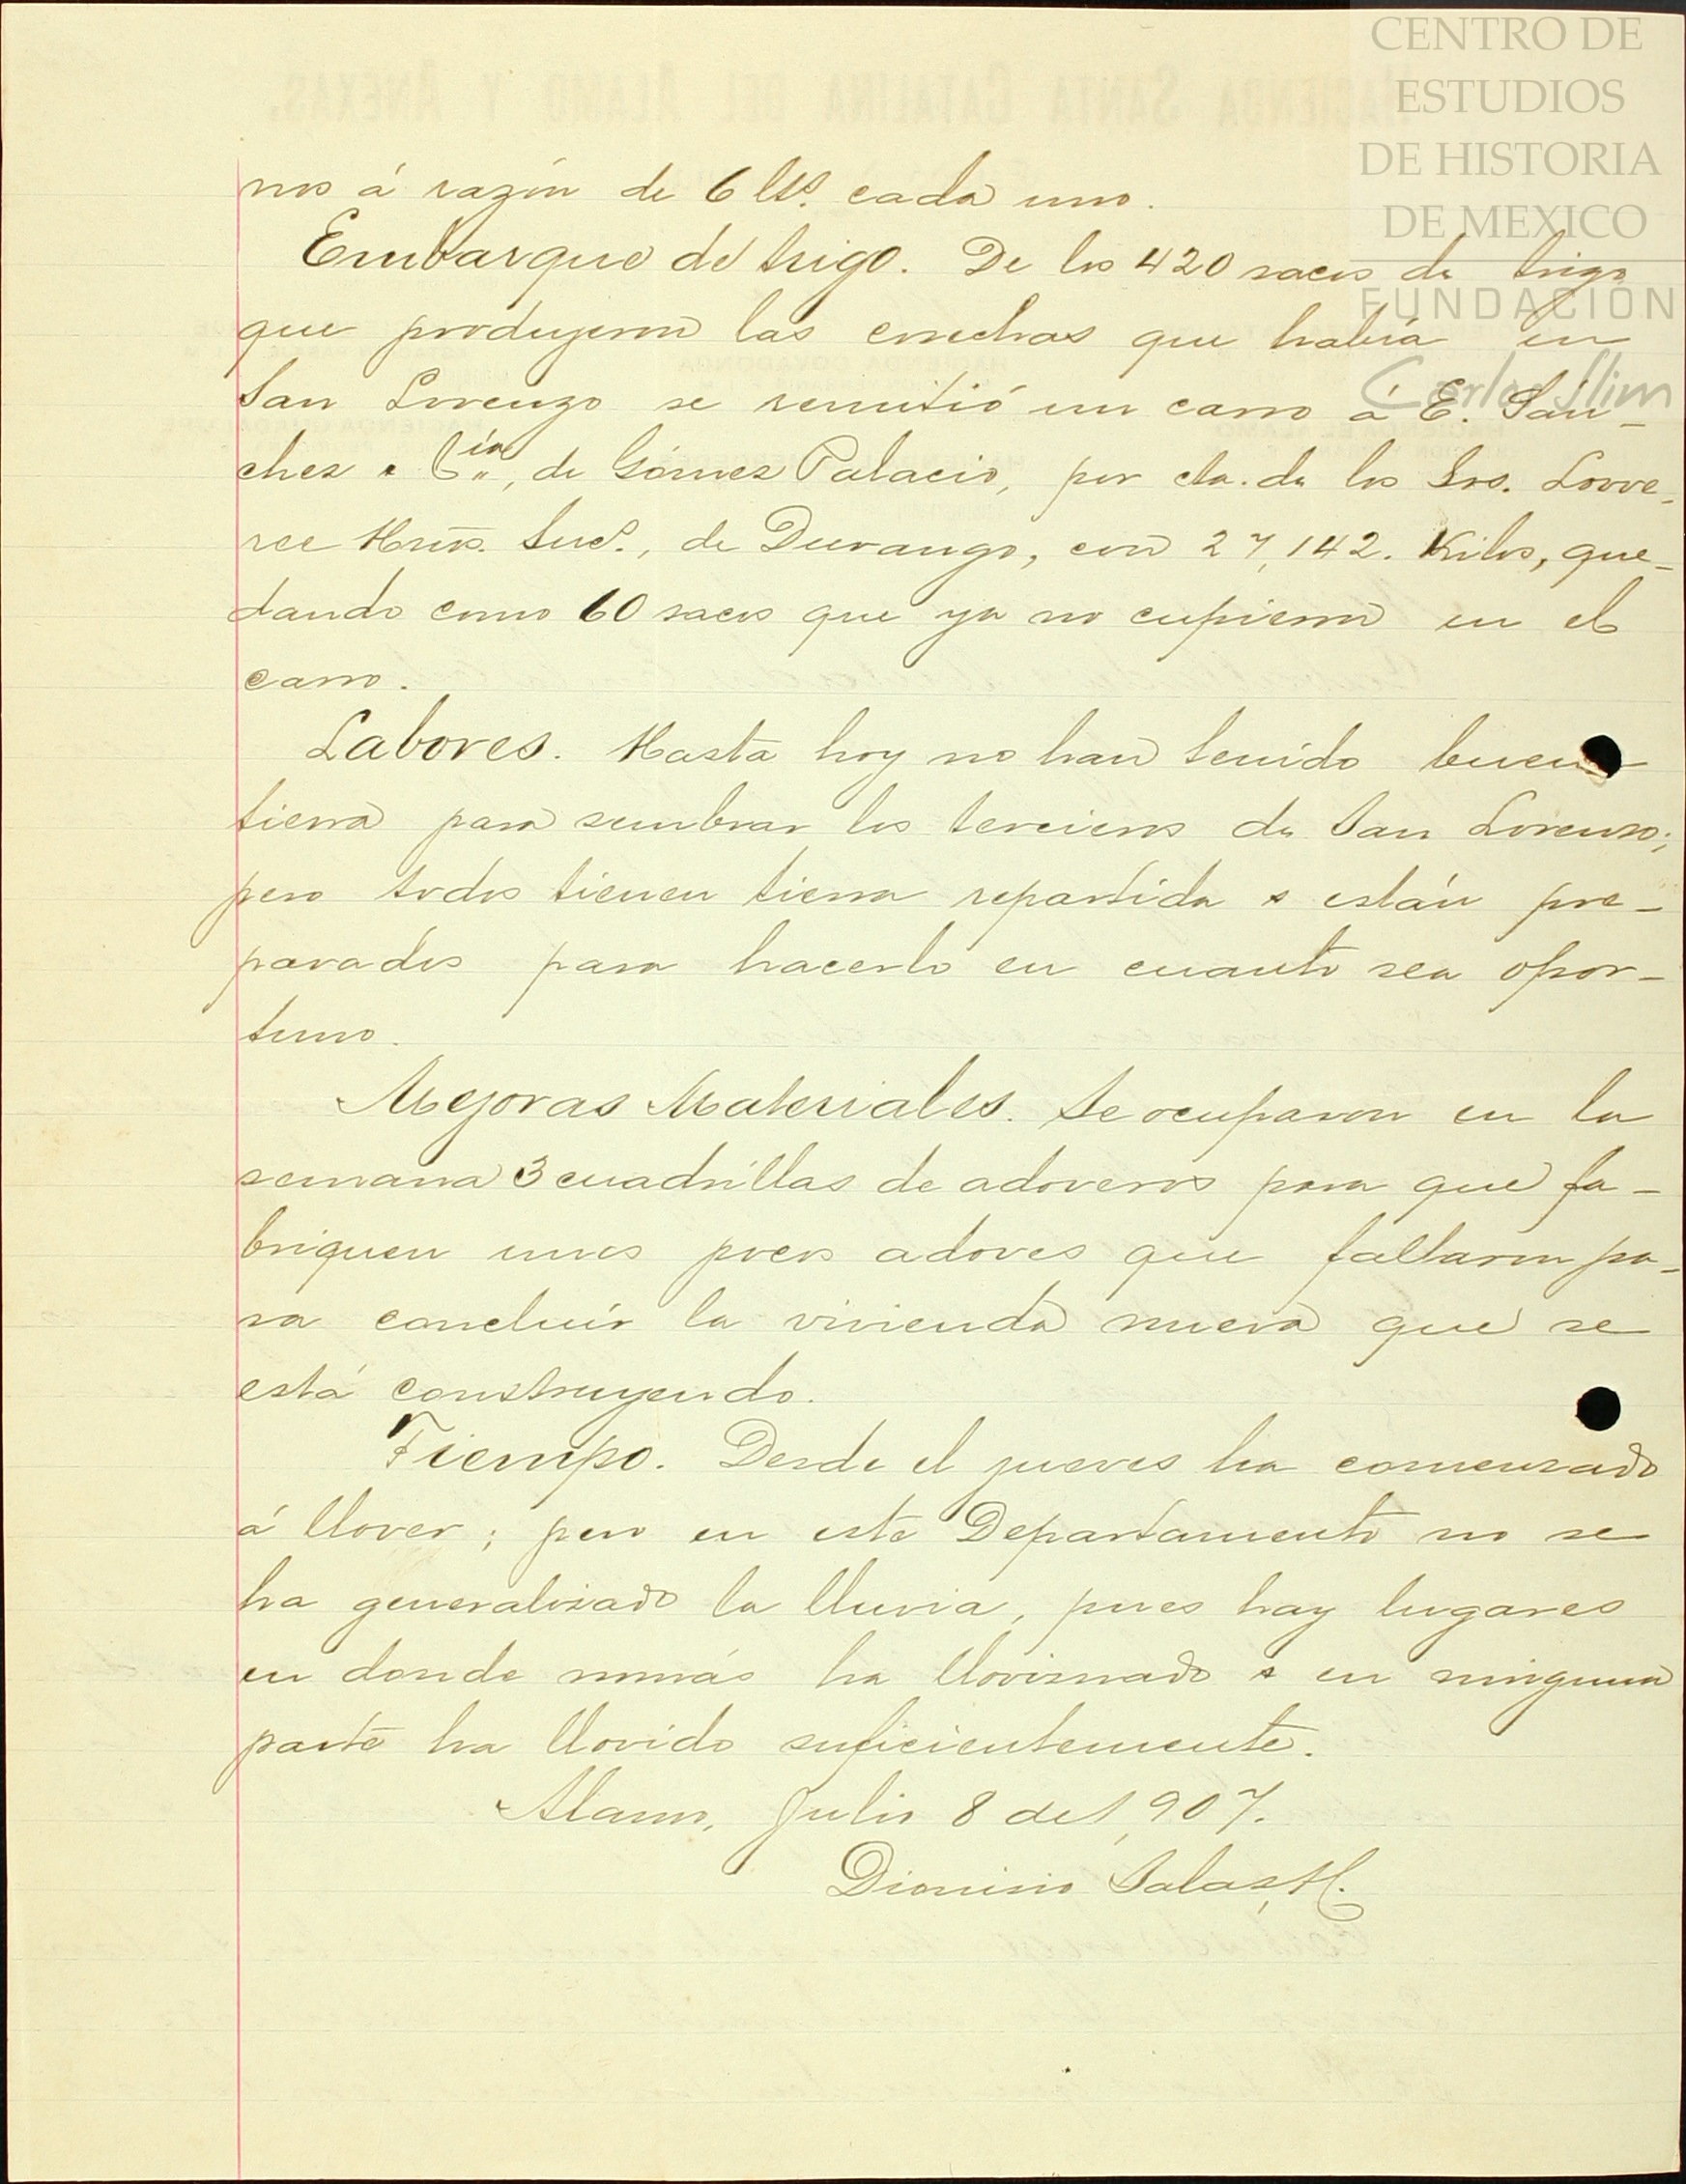 CENTRO DE
ESTUDIOS
DE HISTORIA
DE MEXICO
FUNDACIÓN
Carlos Slim
HACIENDA SANTA CATALINA DEL ALAMO Y ANEXAS.
nos á razón de 6 lts. cada uno.
Embarque de trigo. De los 420 sacos de trigo
que produjeron las cosechas que había en
San Lorenzo se remitió un carro á E. Sán-
chez & Cía, de Gómez Palacio, por cta. de los Srs. Lowe-
ree Hnos. Suc., de Durango, con 27,142. Kilos, que-
dando como 60 sacos que ya no cupieron en el
carro.
Labores. Hasta hoy no han tenido buena
tierra para sembrar los tercieros de San Lorenzo;
pero todos tienen tierra repartida & están pre-
parados para hacerlo en cuanto sea opor-
tuno.
Mejoras Materiales. Se ocuparon en la
semana 3 cuadrillas de adoveros para que fa-
briquen unos pocos adoves que faltaron pa-
ra concluír la vivienda nueva que se
está construyendo.
Tiempo. Desde el jueves ha comenzado
á llover; pero en este Departamento no se
ha generalizado la lluvia, pues hay lugares
en donde nomás ha lloviznado & en ninguna
parte ha llovido suficientemente.
Alamo, Julio 8 de 1,907.
Dionisio Salas, H.